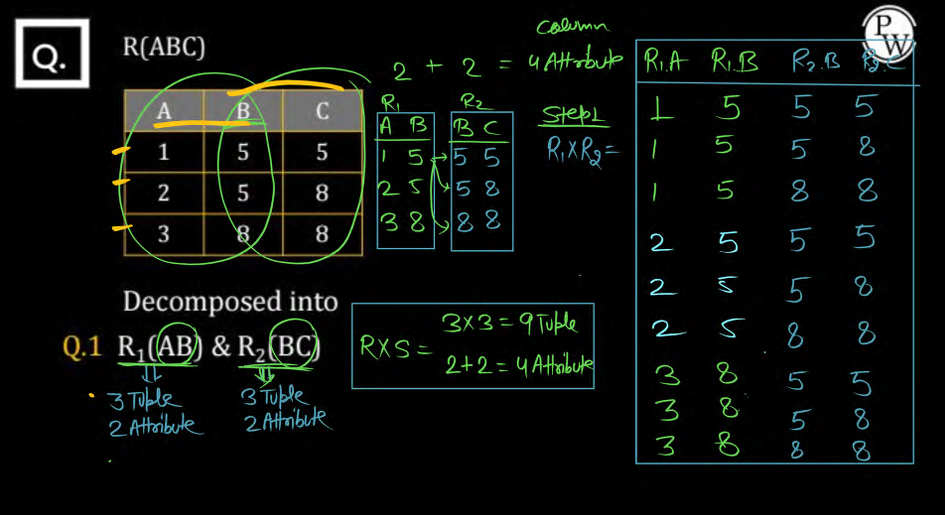 Q.
R(ABC)
A B C
1 5 5
2 5 8
3 8 8
Decomposed into
Q.1 R₁(AB) & R₂(BC)
3 Tuple
2 Attribute
3 Tuple
2 Attribute
Column
2 + 2 = 4 Attribute
R₁
A B
1 5
2 5
3 8
R₂
B C
5 5
5 8
8 8
Step1
R₁XR₂=
RXS =
3X3 = 9 Tuple
2+2 = 4 Attribute
PW
R₁.A R₁.B R₂.B R₂.C
1 5 5 5
1 5 5 8
1 5 8 8
2 5 5 5
2 5 5 8
2 5 8 8
3 8 5 5
3 8 5 8
3 8 8 8